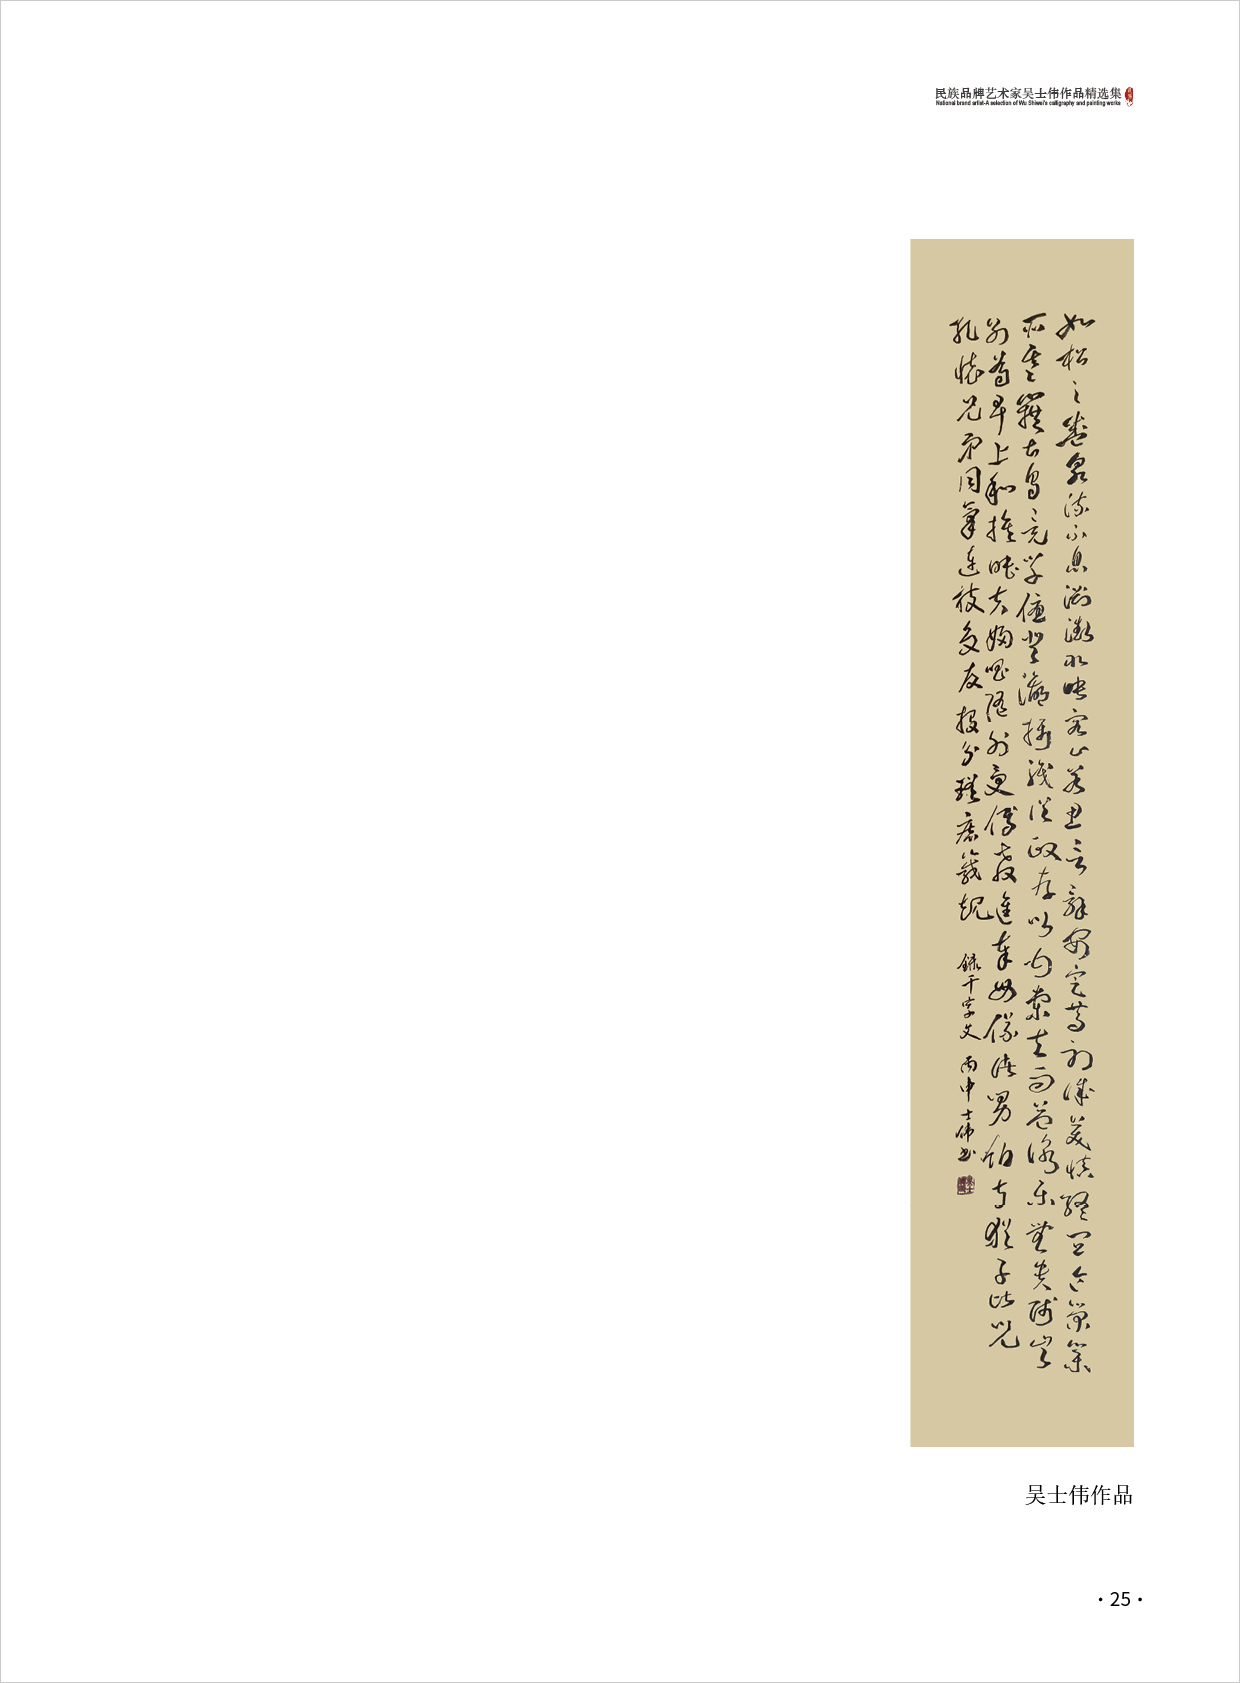 民族品牌艺术家吴士伟作品精选集
National brand artist-A selection of Wu Shiwei's calligraphy and painting works
如松之盛川流不息淵澂取映容止若思言辭安定篤初誠美慎終宜令榮業
所基籍甚無竟學優登仕攝職從政存以甘棠去而益詠樂殊貴賤禮
別尊卑上和下睦夫唱婦隨外受傅訓入奉母儀諸姑伯叔猶子比兒
孔懷兄弟同氣連枝交友投分切磨箴規 錄千字文 丙申 士偉书
吴士伟作品
·25·